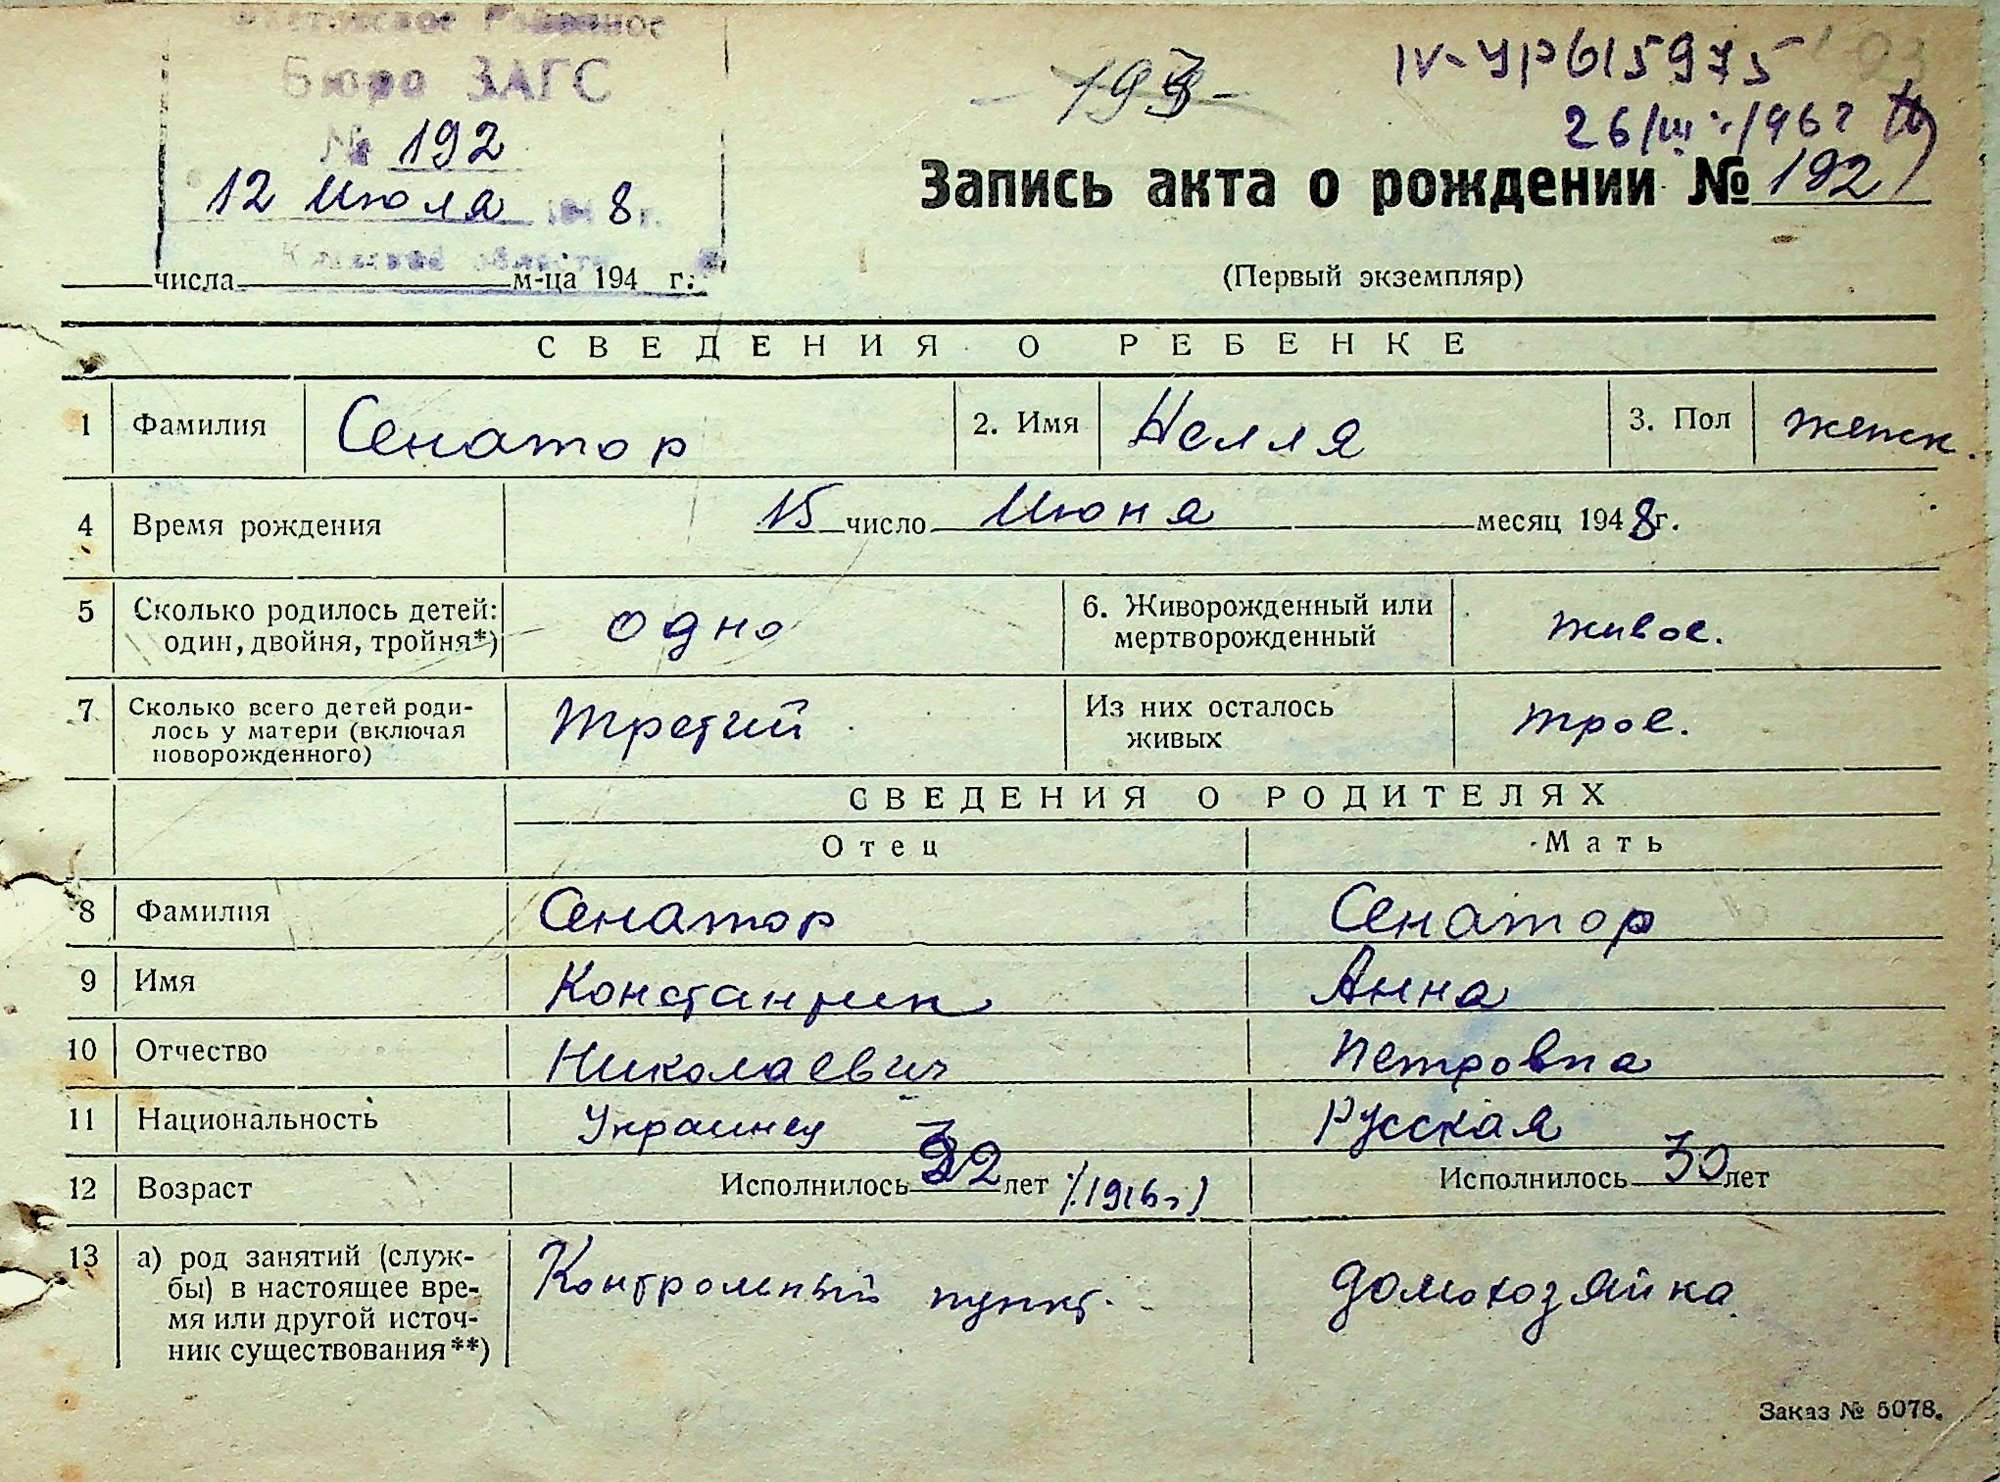 Бюро ЗАГС
№ 192
12 Июля 1948 г.
Киевской области
числа м-ца 194 г.
193
IV-УР 615975
26/III-1962
Запись акта о рождении № 192
(Первый экземпляр)
СВЕДЕНИЯ О РЕБЕНКЕ
1 Фамилия Сенатор 2. Имя Нелля 3. Пол женск.
4 Время рождения 15 число Июня месяц 1948 г.
5 Сколько родилось детей: один, двойня, тройня*) одно 6. Живорожденный или мертворожденный живое.
7 Сколько всего детей родилось у матери (включая новорожденного) третий Из них осталось живых трое.
СВЕДЕНИЯ О РОДИТЕЛЯХ
Отец Мать
8 Фамилия Сенатор Сенатор
9 Имя Константин Анна
10 Отчество Николаевич Петровна
11 Национальность Украинец Русская
12 Возраст Исполнилось 32 лет /1916г) Исполнилось 30 лет
13 а) род занятий (служ-
бы) в настоящее вре-
мя или другой источ-
ник существования**)
Контрольный пункт. домохозяйка
Заказ № 5078.